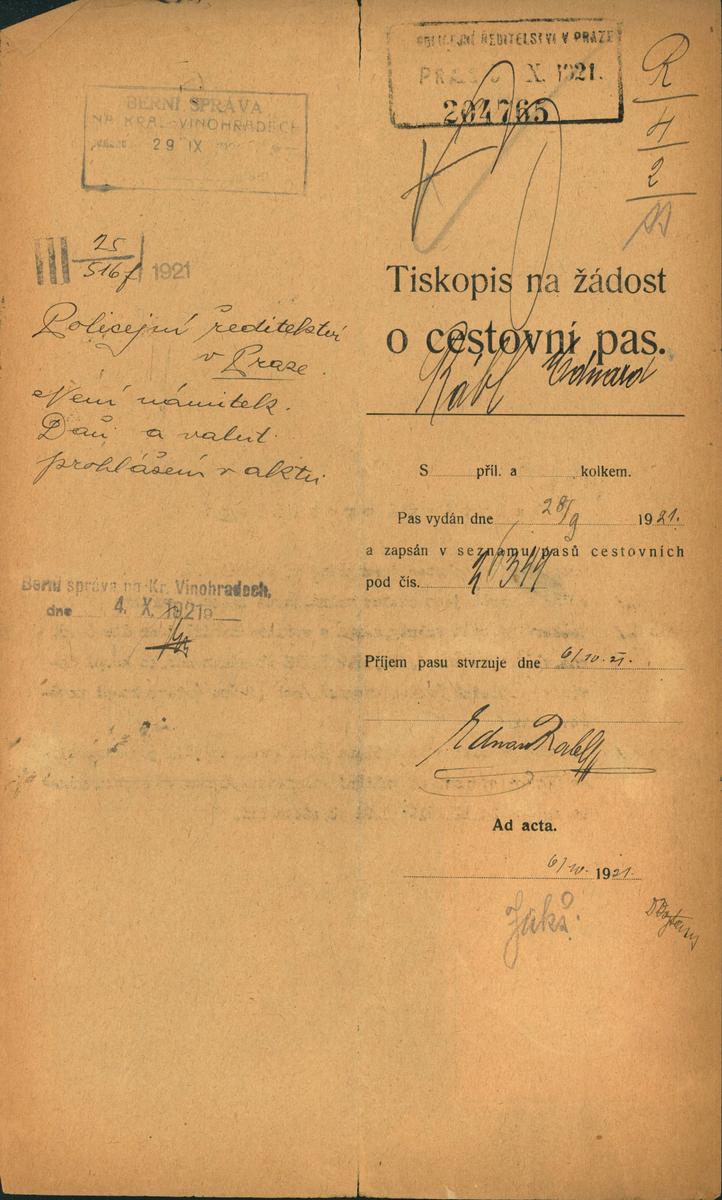 BERNÍ SPRÁVA
NA KRÁL. VINOHRADECH
29 IX
III 25/516 1921
Policejní ředitelství
v Praze.
Není námitek.
Daň a valut.
prohlášení v aktu
Berní správa na Kr. Vinohradech,
dne 4. X. 1921
POLICEJNÍ ŘEDITELSTVÍ V PRAZE
X. 1921.
204765
R
4
2
Tiskopis na žádost
o cestovní pas.
Rábl Eduard
S příl. a kolkem.
Pas vydán dne 28/9 1921.
a zapsán v seznamu pasů cestovních
pod čís. 26344
Příjem pasu stvrzuje dne 6/10. 21.
Eduard Rabl
Ad acta.
6/10. 1921.